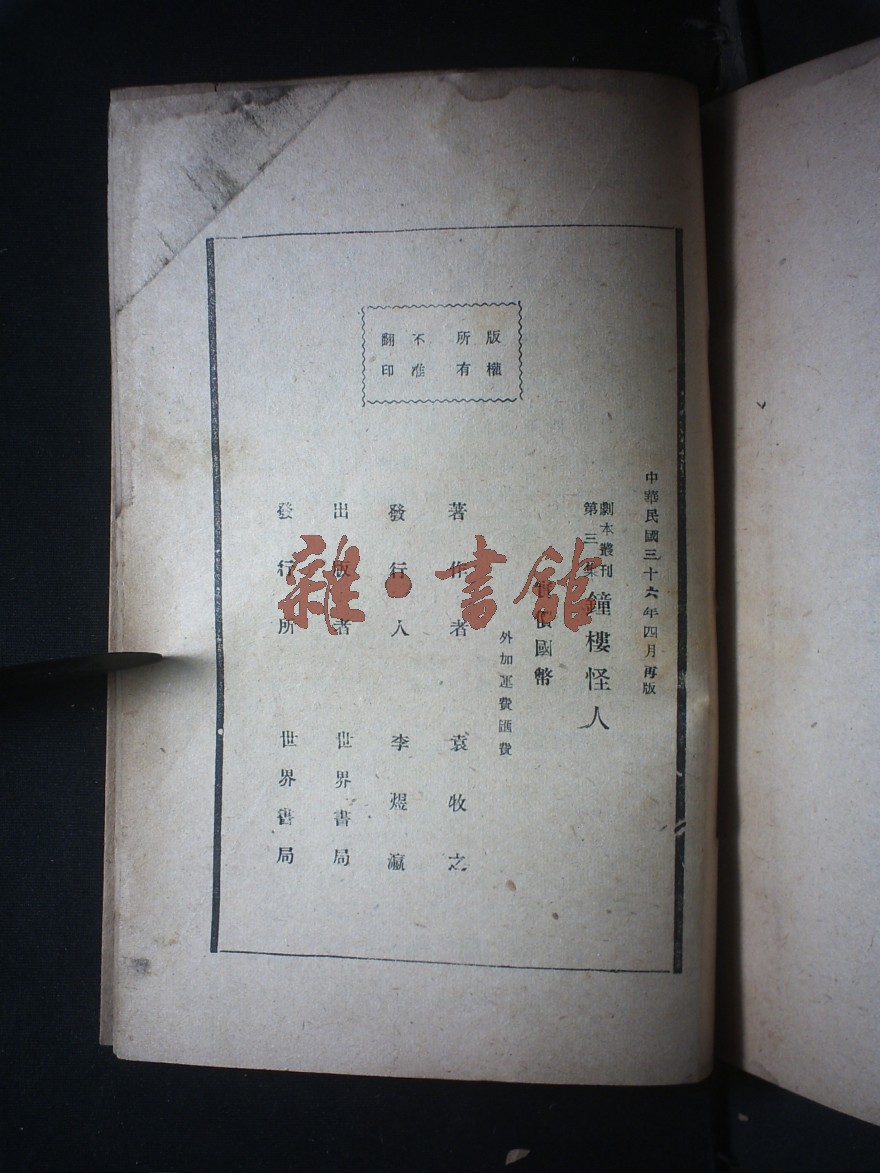 版權
所有
不准
翻印
中華民國三十六年四月再版
劇本叢刊
第三集
鐘樓怪人
國幣
外加運費匯費
著作者 袁牧之
發行人 李煜瀛
出版者 世界書局
發行所 世界書局
雜·書館